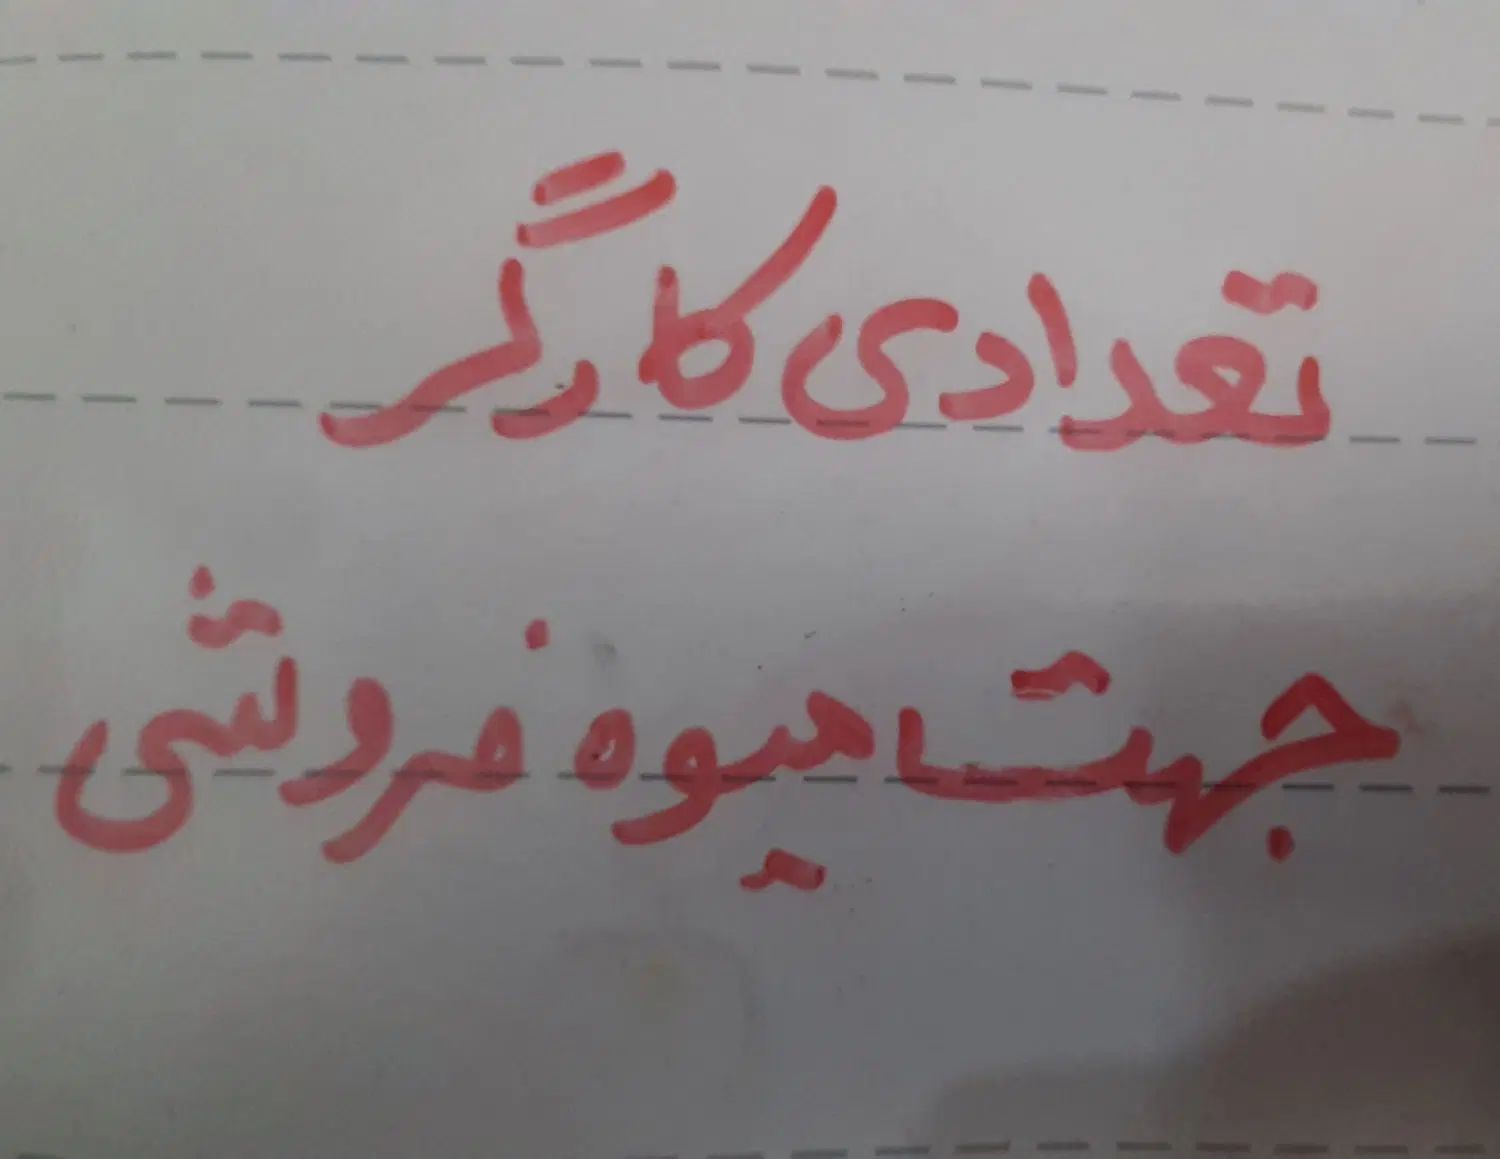 تعدادی کارگر
جهت میوه فروشی